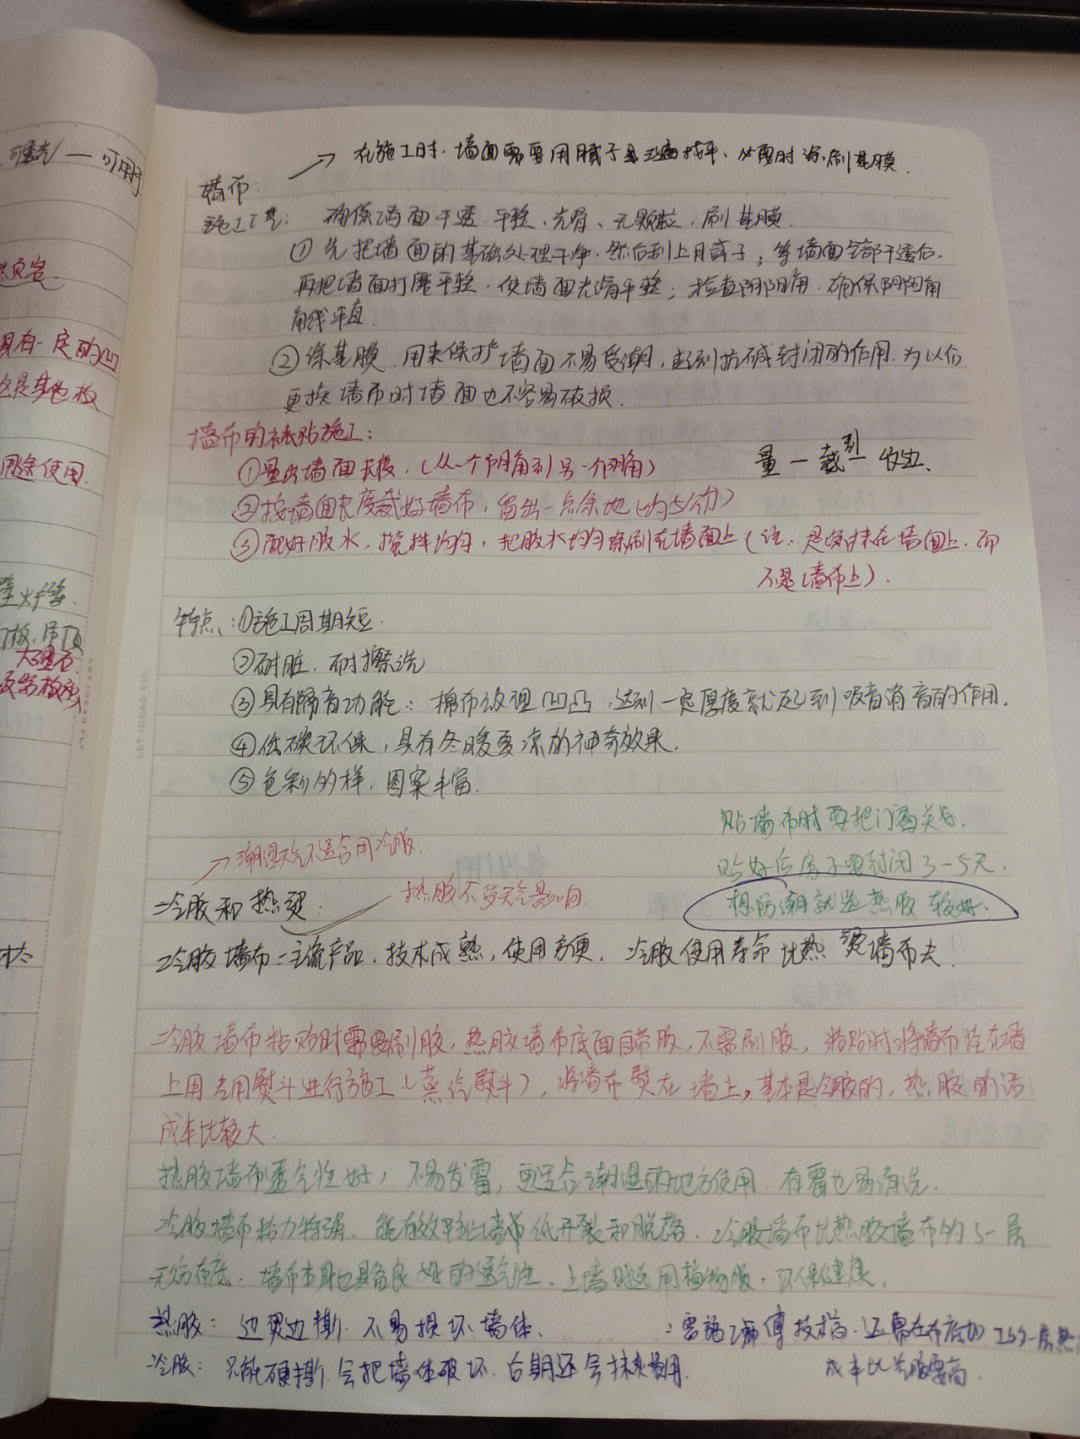 可重 — 可用
→ 在施工时、墙面需要用腻子找平、必要时涂刷基膜.
墙布:
施工工艺: 确保墙面干透、平整、光滑、无颗粒、刷基膜.
① 先把墙面的基础处理干净.然后刮上腻子;等墙面全部干透后.
再把墙面打磨平整.使墙面光滑平整;检查阴阳角.确保阴阳角
角线平直.
② 涂基膜.用来保护墙面不易受潮,起到抗碱封闭的作用.为以后
更换墙布时墙面也不容易破损.
墙布的裱贴施工:
①量出墙面长度.(从一个阴角到另一个阴角)
量 — 裁 — 
②按墙面长度裁好墙布,留出一点余地(约5公分)
③配好胶水,搅拌均匀,把胶水均匀涂刷在墙面上(注:是涂抹在墙面上.而
不是墙布上).
特点:①施工周期短.
②耐脏.耐擦洗
③具有隔音功能:棉布纹理凹凸,达到一定厚度就起到吸音消音的作用.
④低碳环保,具有冬暖夏凉的神奇效果.
⑤色彩的样,图案丰富.
贴墙布时要把门窗关好.
贴好后房子要封闭3-5天.
想防潮就选热胶较好.
→ 潮湿天气不适合用冷胶.
热胶不受天气影响.
冷胶和热烫.
冷胶墙布:主流产品,技术成熟,使用方便. 冷胶使用寿命比热烫墙布长!
冷胶墙布粘贴时需要刷胶,热胶墙布底面自带胶,不需刷胶,粘贴时将墙布挂在墙
上用专用熨斗进行施工(蒸汽熨斗),将墙布熨在墙上,基本是冷胶的,热胶的话
成本比较大.
热胶墙布透气性好,不易发霉,更适合潮湿的地方使用.有霉也易清洗.
冷胶墙布粘力特强.能有效阻止墙布低开裂和脱落.冷胶墙布比热胶墙布的多一层
无纺布底.墙布本身也具备良好的透气性.上墙时选用植物胶,环保健康.
热胶: 边烫边撕.不易损坏墙体. :需施工师傅技术高.还需在布底加工多一层热
冷胶: 只能硬撕.会把墙体破坏.后期还会抹费用. 成本比冷胶要高.
具有一定的凹
也是其他板
用途使用.
吊顶
大理石